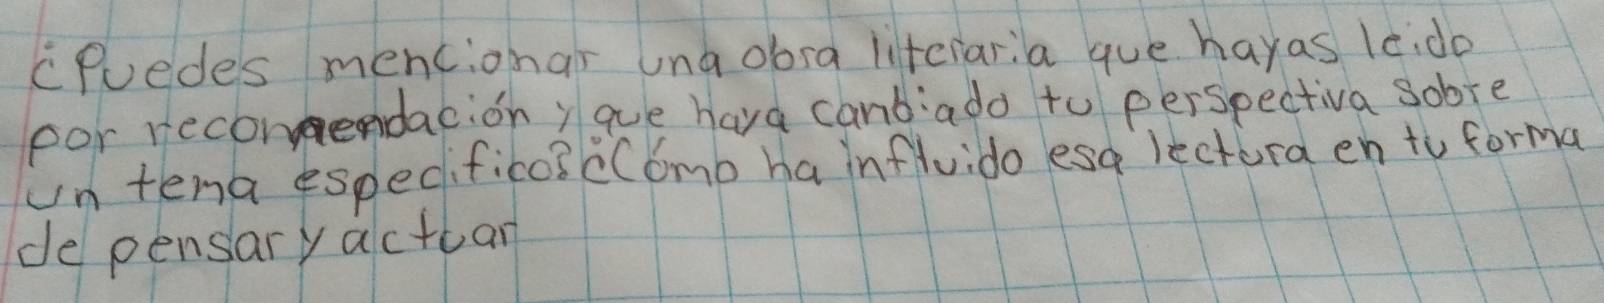 ¿Puedes mencionar una obra literaria que hayas leido
por recomendación y que haya cambiado tu perspectiva sobre
un tema especifico? ¿Cómo ha influido esa lectura en tu forma
de pensar y actuar